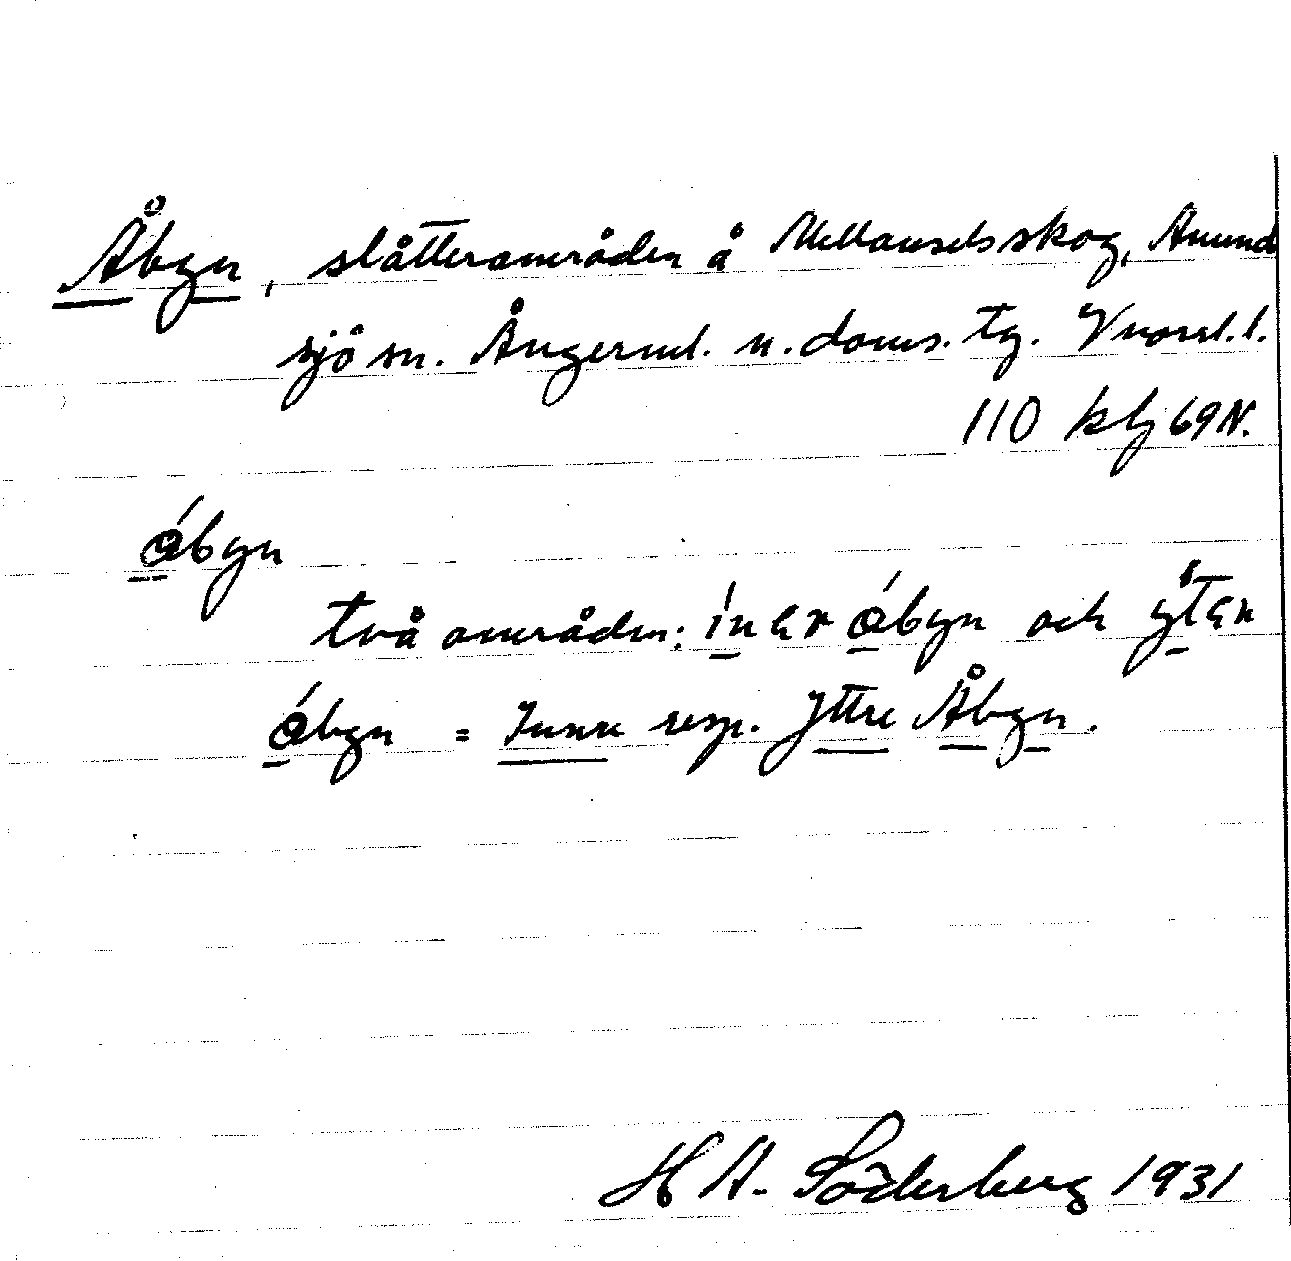 Åbyn, slåtterområden å Mellanselsskog, Anund
sjö sn. Ångerml. n. doms. tg. Vnorrl. l.
110 klj 69 N.
ábyn
två områden: ínər ábyn och ýtər
ábyn = Innre resp. Yttre Åbyn.
H A. Söderberg 1931